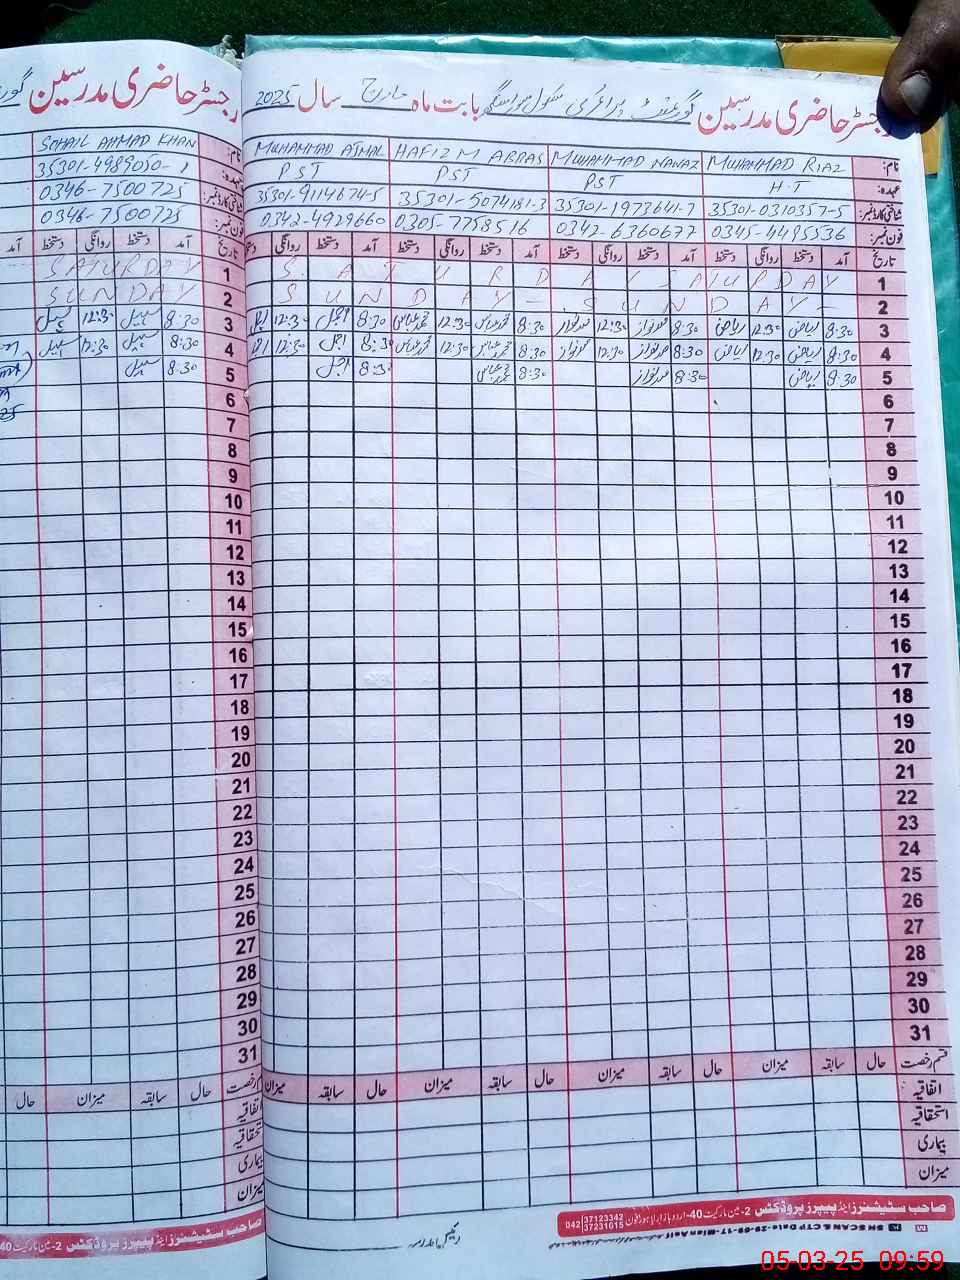 رجسٹر حاضری مدرسین گورنمنٹ پرائمری سکول بابت ماہ مارچ سال 2025
نام: MUHAMMAD RIAZ MUHAMMAD NAWAZ HAFIZ M ABBAS MUHAMMAD AJMAL
عہدہ: H.T PST PST PST
شناختی کارڈ نمبر: 35301-0310357-5 35301-1973641-7 35301-5074181-3 35301-9114674-5
فون نمبر: 0345-4495536 0342-6360677 0305-7758516 0342-4929660
تاریخ آمد دستخط روانگی دستخط آمد دستخط روانگی دستخط آمد دستخط روانگی دستخط آمد دستخط روانگی
1 SATURDAY SATURDAY
2 SUNDAY SUNDAY
3 8:30 ریاض 12:30 ریاض 8:30 محمد نواز 12:30 محمد نواز 8:30 محمد عباس 12:30 محمد عباس 8:30 اجمل 12:30 اجمل
4 8:30 ریاض 12:30 ریاض 8:30 محمد نواز 12:30 محمد نواز 8:30 محمد عباس 12:30 محمد عباس 8:30 اجمل 12:30 اجمل
5 8:30 ریاض 8:30 محمد نواز 8:30 محمد عباس 8:30 اجمل
6
7
8
9
10
11
12
13
14
15
16
17
18
19
20
21
22
23
24
25
26
27
28
29
30
31
قسم رخصت حال سابقہ میزان حال سابقہ میزان حال سابقہ میزان حال سابقہ میزان
اتفاقیہ
استحقاقیہ
بیماری
میزان
صاحب سٹیشنرز اینڈ پیپرز پروڈکٹس 2- مین مارکیٹ 40- اردو بازار لاہور فون 042 37123342 37231615
رئیس مدرسہ
رجسٹر حاضری مدرسین
نام: SOHAIL AHMAD KHAN
عہدہ: 35301-4989050-1
شناختی کارڈ نمبر: 0346-7500725
فون نمبر: 0346-7500725
تاریخ آمد دستخط روانگی دستخط آمد
1 SATURDAY
2 SUNDAY
3 8:30 سہیل 12:30 سہیل
4 8:30 سہیل 12:30 سہیل
5 8:30 سہیل
6
7
8
9
10
11
12
13
14
15
16
17
18
19
20
21
22
23
24
25
26
27
28
29
30
31
حال سابقہ میزان حال
اتفاقیہ
استحقاقیہ
بیماری
میزان
صاحب سٹیشنرز اینڈ پیپرز پروڈکٹس 2- مین مارکیٹ 40
05-03-25 09:59